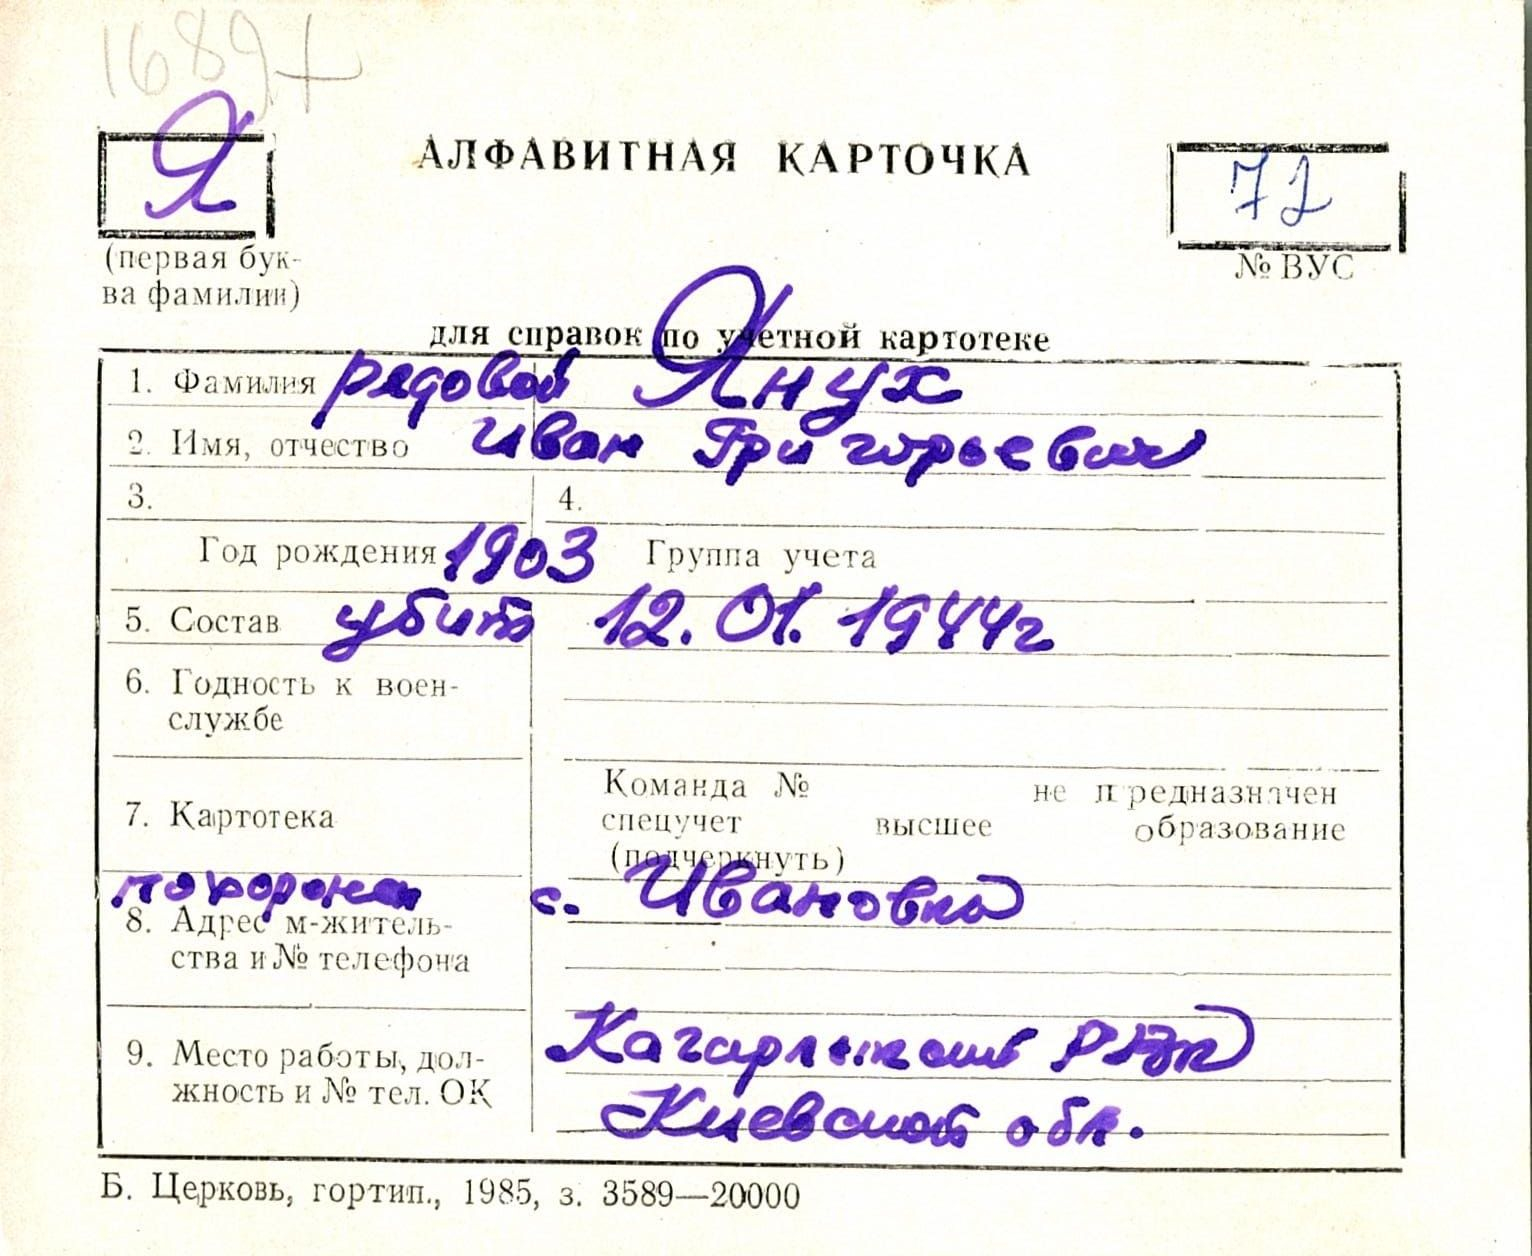 1689+
Я
АЛФАВИТНАЯ КАРТОЧКА
72
(первая бук-
ва фамилии)
№ ВУС
для справок по учетной картотеке
1. Фамилия рядовой Янух
2. Имя, отчество Иван Григорьевич
3. 4.
Год рождения 1903 Группа учета
5. Состав убит 12.01.1944г
6. Годность к воен-
службе
Команда № не предназначен
7. Картотека
спецучет высшее образование
(подчеркнуть)
похоронен с. Ивановка
8. Адрес м-житель-
ства и № телефона
Кагарлыкский р-он
9. Место работы, дол-
жность и № тел. ОК
Киевской обл.
Б. Церковь, гортип., 1985, з. 3589—20000